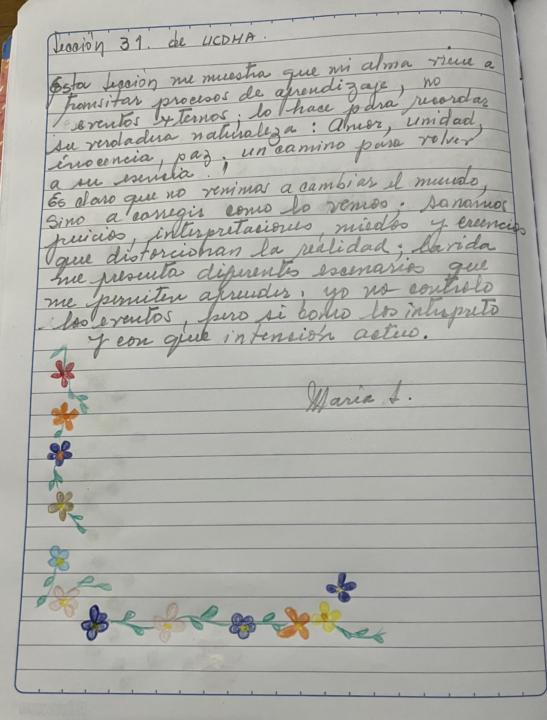 Lección 31. de UCDMA.
Esta lección me muestra que mi alma viene a
transitar procesos de aprendizaje, no
eventos externos, lo hace para recordar
su verdadera naturaleza: Amor, unidad,
inocencia, paz, un camino para volver
a su esencia.
Es claro que no venimos a cambiar el mundo,
Sino a corregir como lo vemos. Sanamos
juicios, interpretaciones, miedos y creencias
que distorcionan la realidad; la vida
me presenta diferentes escenarios que
me permiten aprender, yo no controlo
los eventos, pero si como los interpreto
y con que intensión actuo.
Maria A.